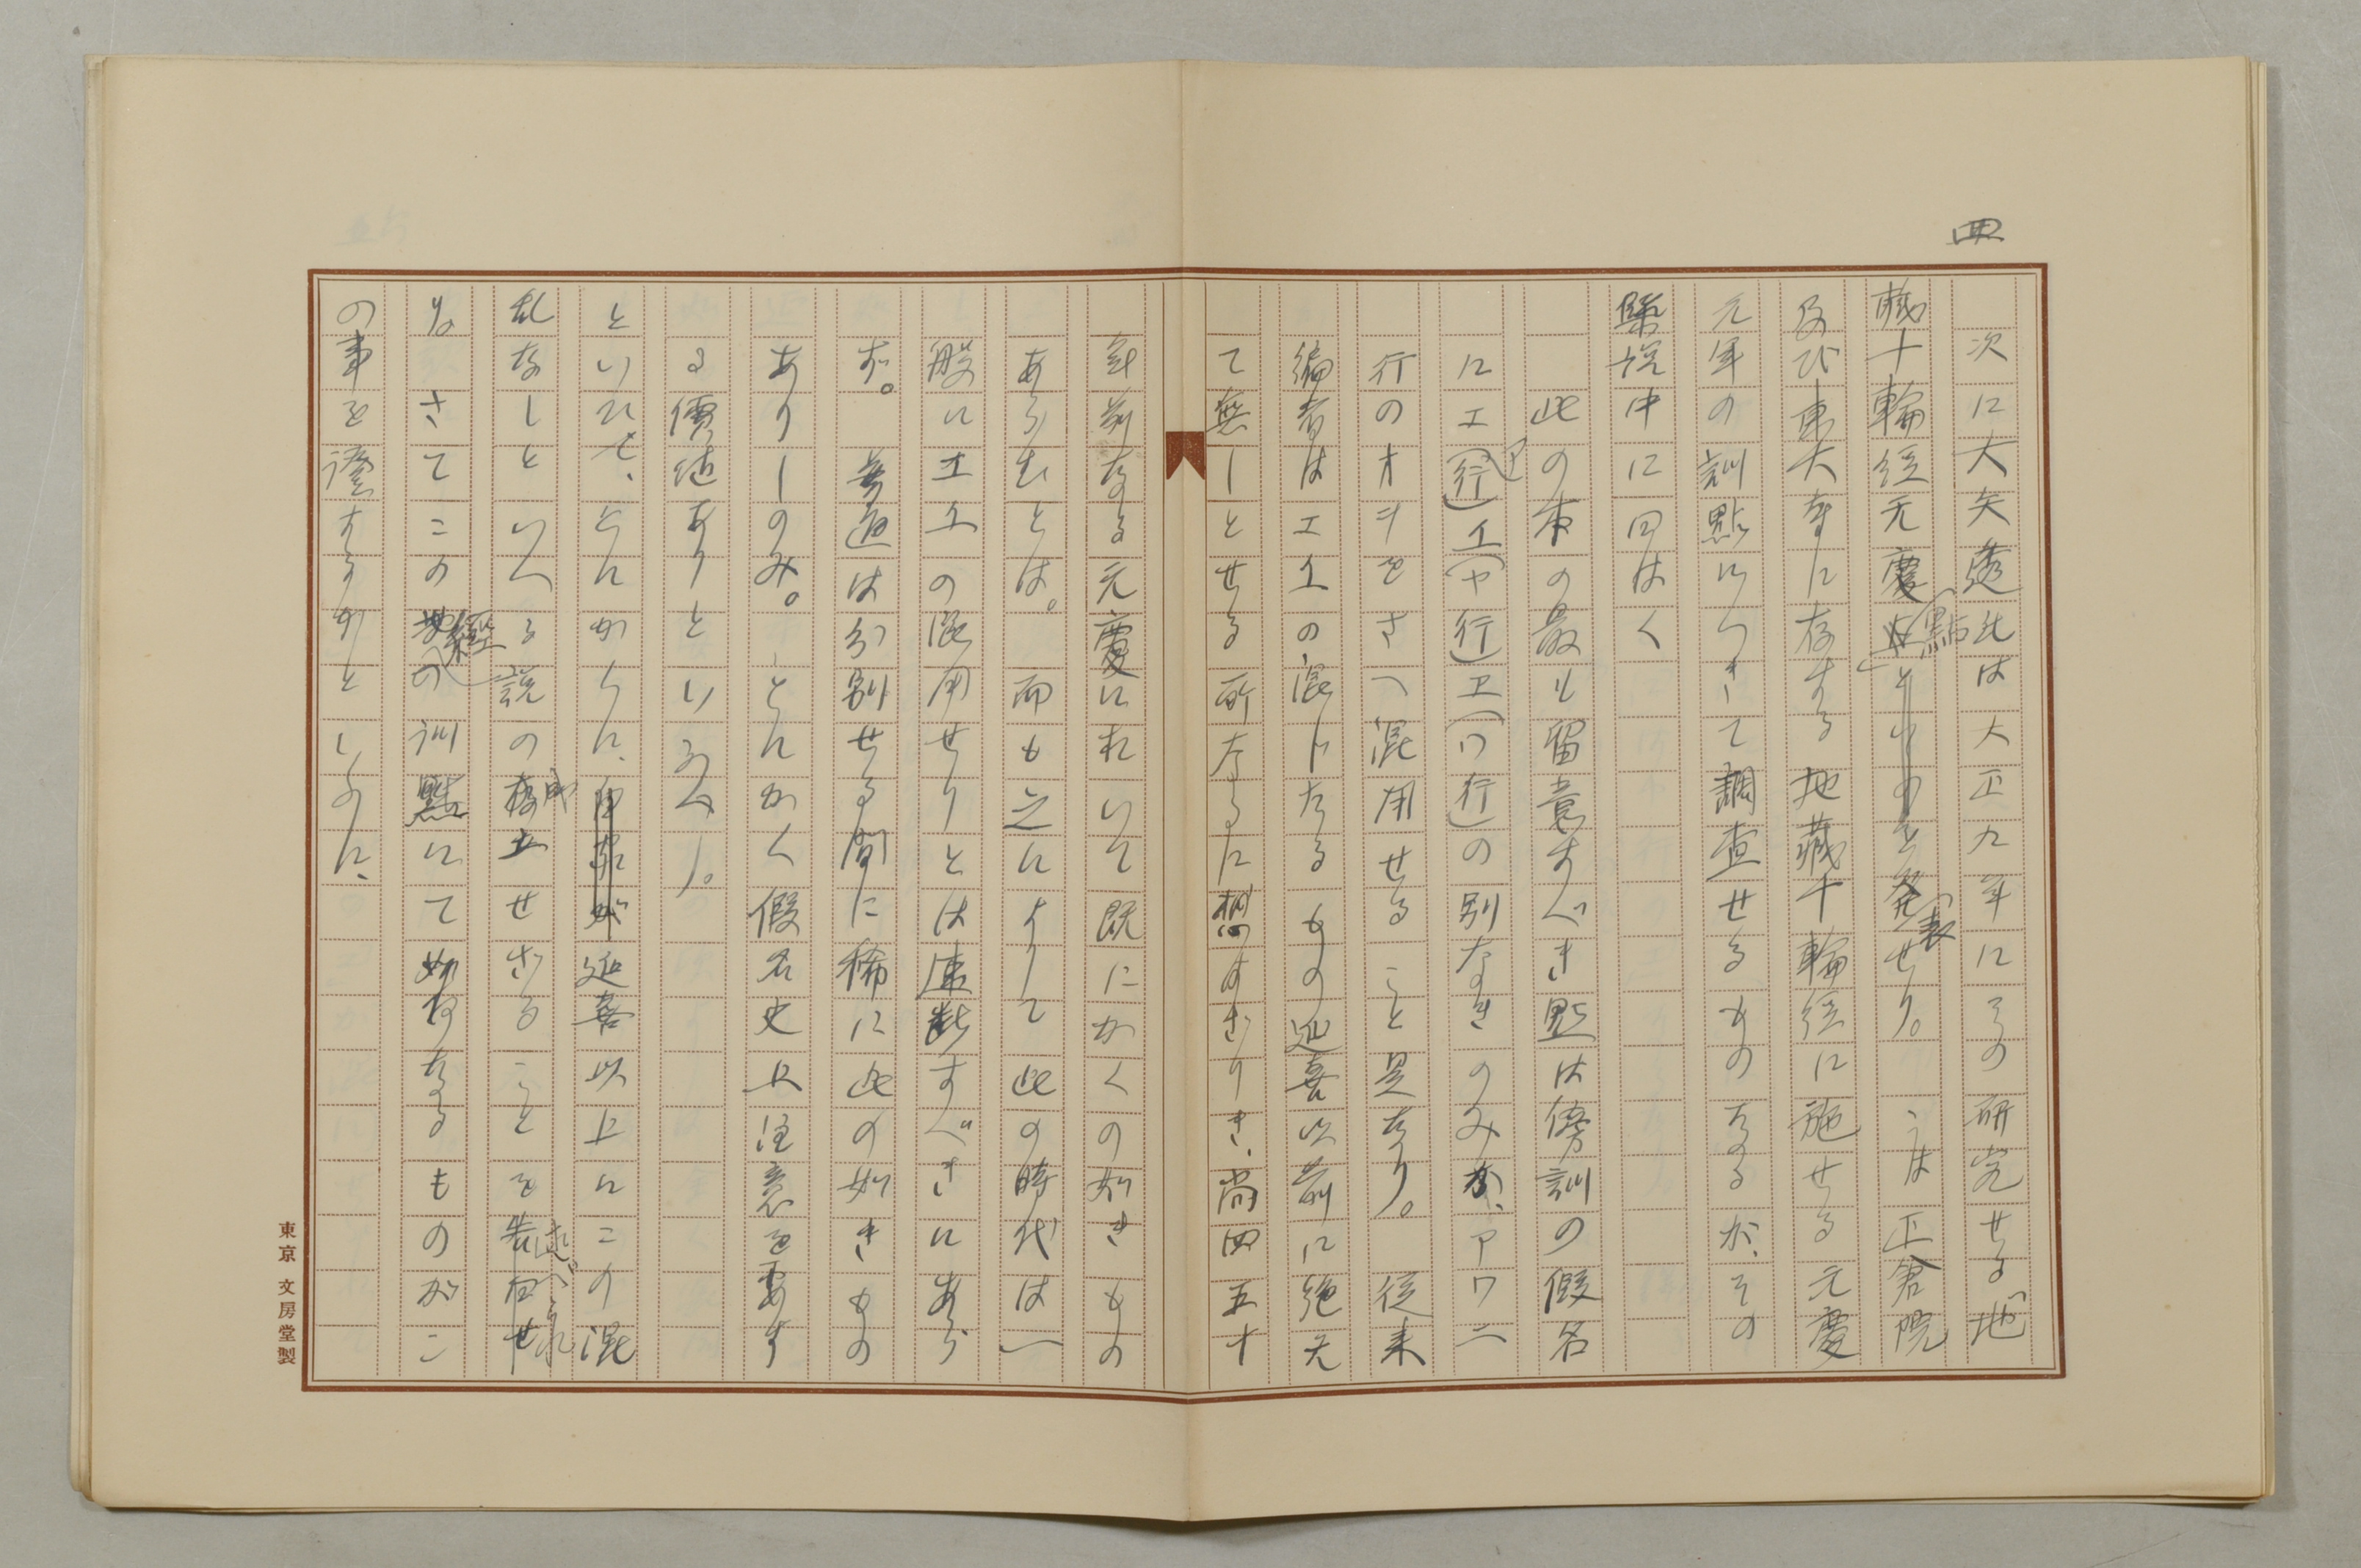 四
次に大矢透氏は大正九年にその研究せる地
蔵十輪経元慶點を発表せり。こは正倉院
及び東大寺に存する地蔵十輪経に施せる元慶
元年の訓點につきて調査せるものなるが、その
概説中に曰はく
此の本の最も留意すべき點は傍訓の假名
にエ(ア行)イ(ヤ行)ヱ(ワ行)の別なきのみか、アワ二
行のオヲをさへ混用せること是なり。従来
編者はエイの混じたるもの延喜以前に絶え
て無しとせる所なるに想はざりき、尚四五十
年前なる元慶において既にかくの如きもの
あらむとは。而も之によりて此の時代は一
般にエイの混用せりとは速断すべきにあら
ず。普通は分別せる間に稀に此の如きもの
ありしのみ。とにかく假名史上注意を要す
る價値ありといふべし。
といひて、とにかくに、延喜以上にこの混
乱なしといへる説の成立せざることを述べられ
き。さてこの經の訓點にて如何なるものがこ
の事を證するかといふに、
東京 文房堂製